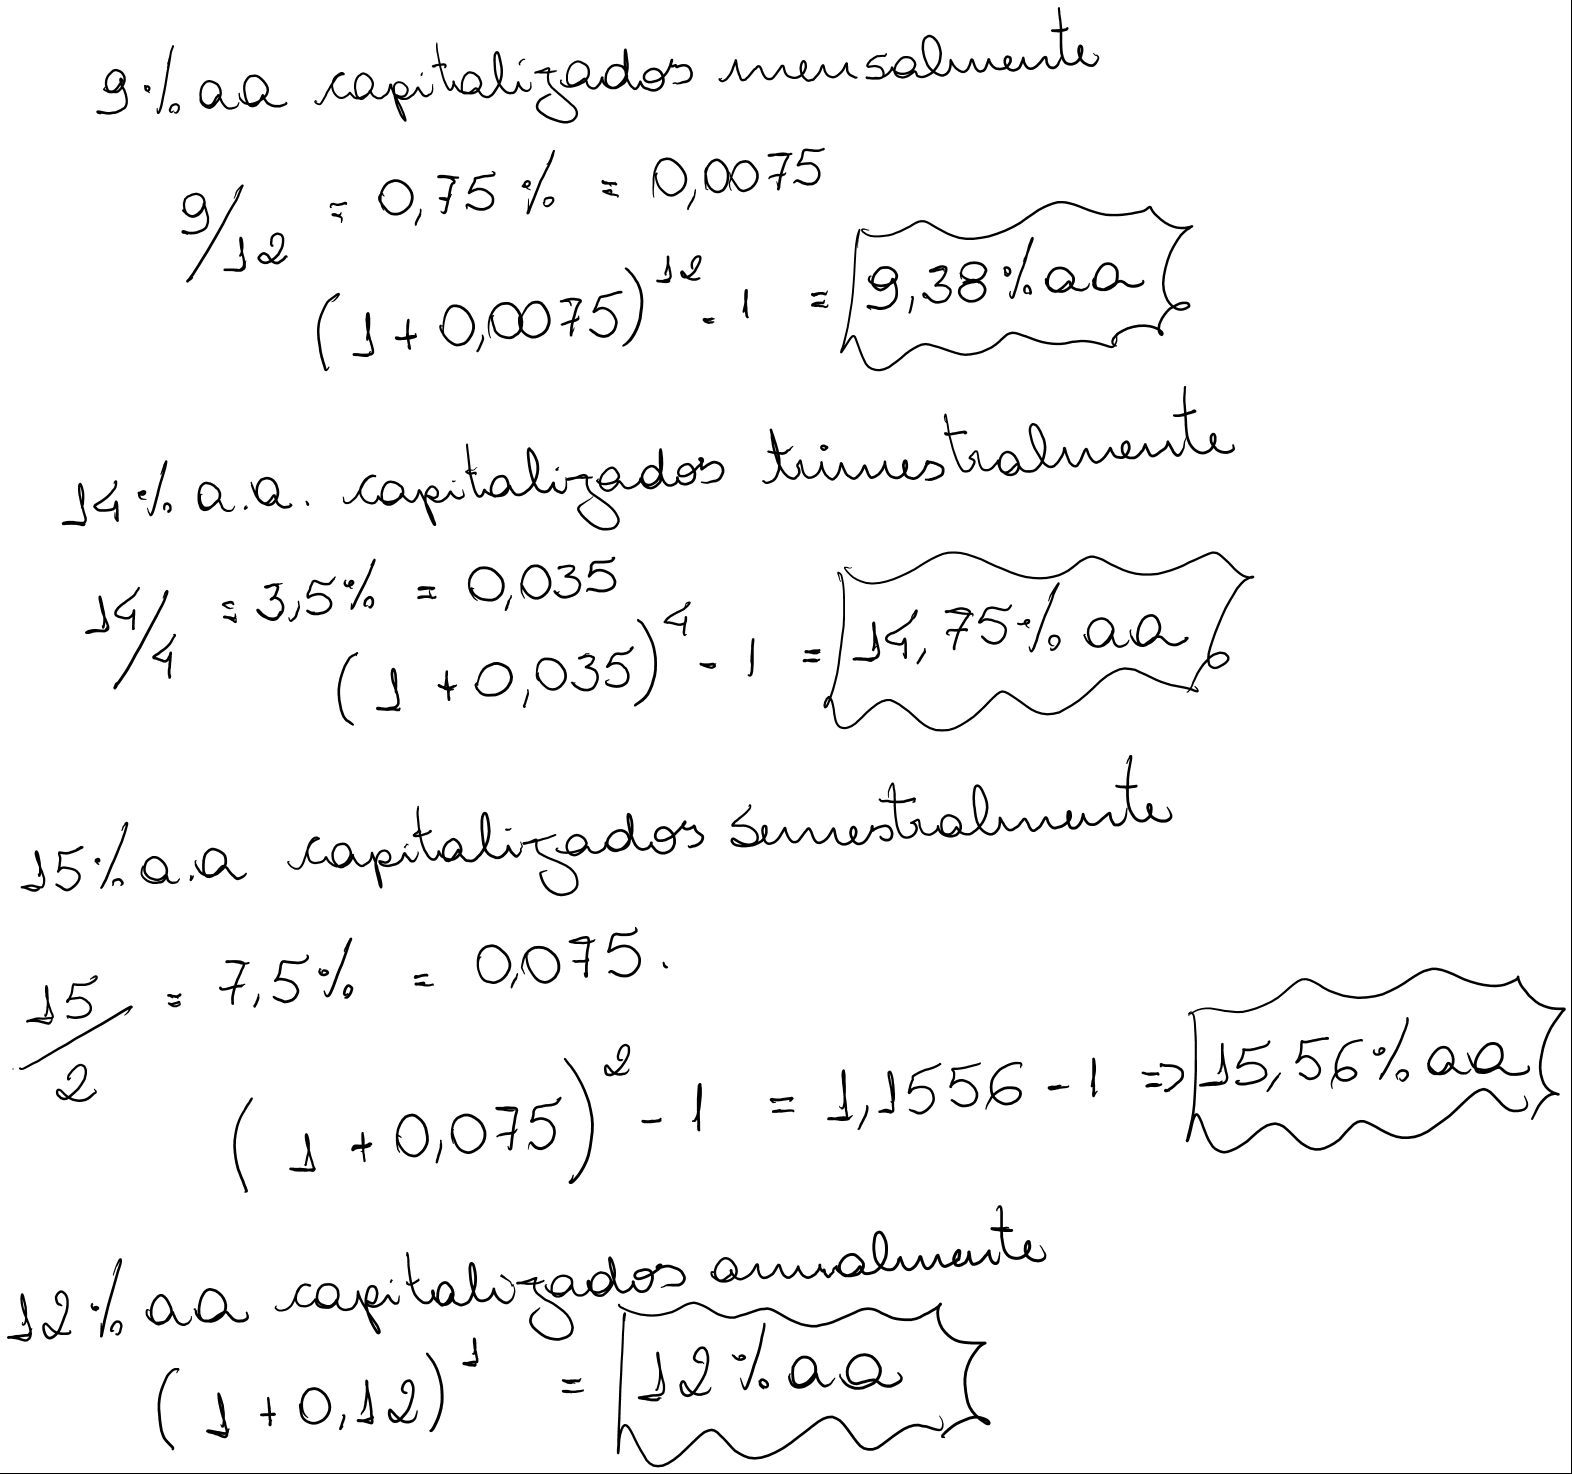 9% aa capitalizados mensalmente
9/12 = 0,75% = 0,0075
(1 + 0,0075)^12 - 1 = 9,38% aa
14% a.a. capitalizados trimestralmente
14/4 = 3,5% = 0,035
(1 + 0,035)^4 - 1 = 14,75% aa
15% a.a capitalizados semestralmente
15/2 = 7,5% = 0,075.
(1 + 0,075)^2 - 1 = 1,1556 - 1 => 15,56% aa
12% aa capitalizados anualmente
(1 + 0,12)^1 = 12% aa